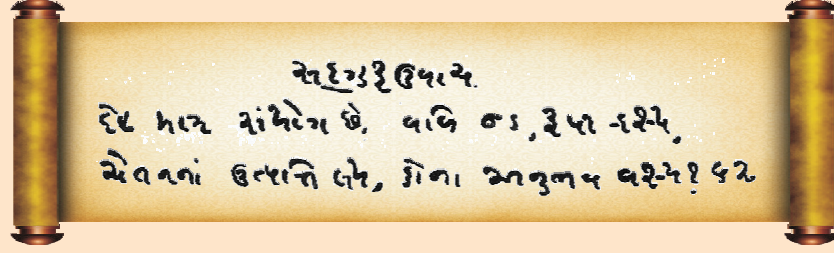 સદ્ગુરુ ઉવાચ
દેહ માત્ર સંયોગ છે, વળિ જડ, રૂપી દૃશ્ય,
ચેતનનાં ઉત્પત્તિ લય, કોના અનુભવ વશ્ય? ૬૨